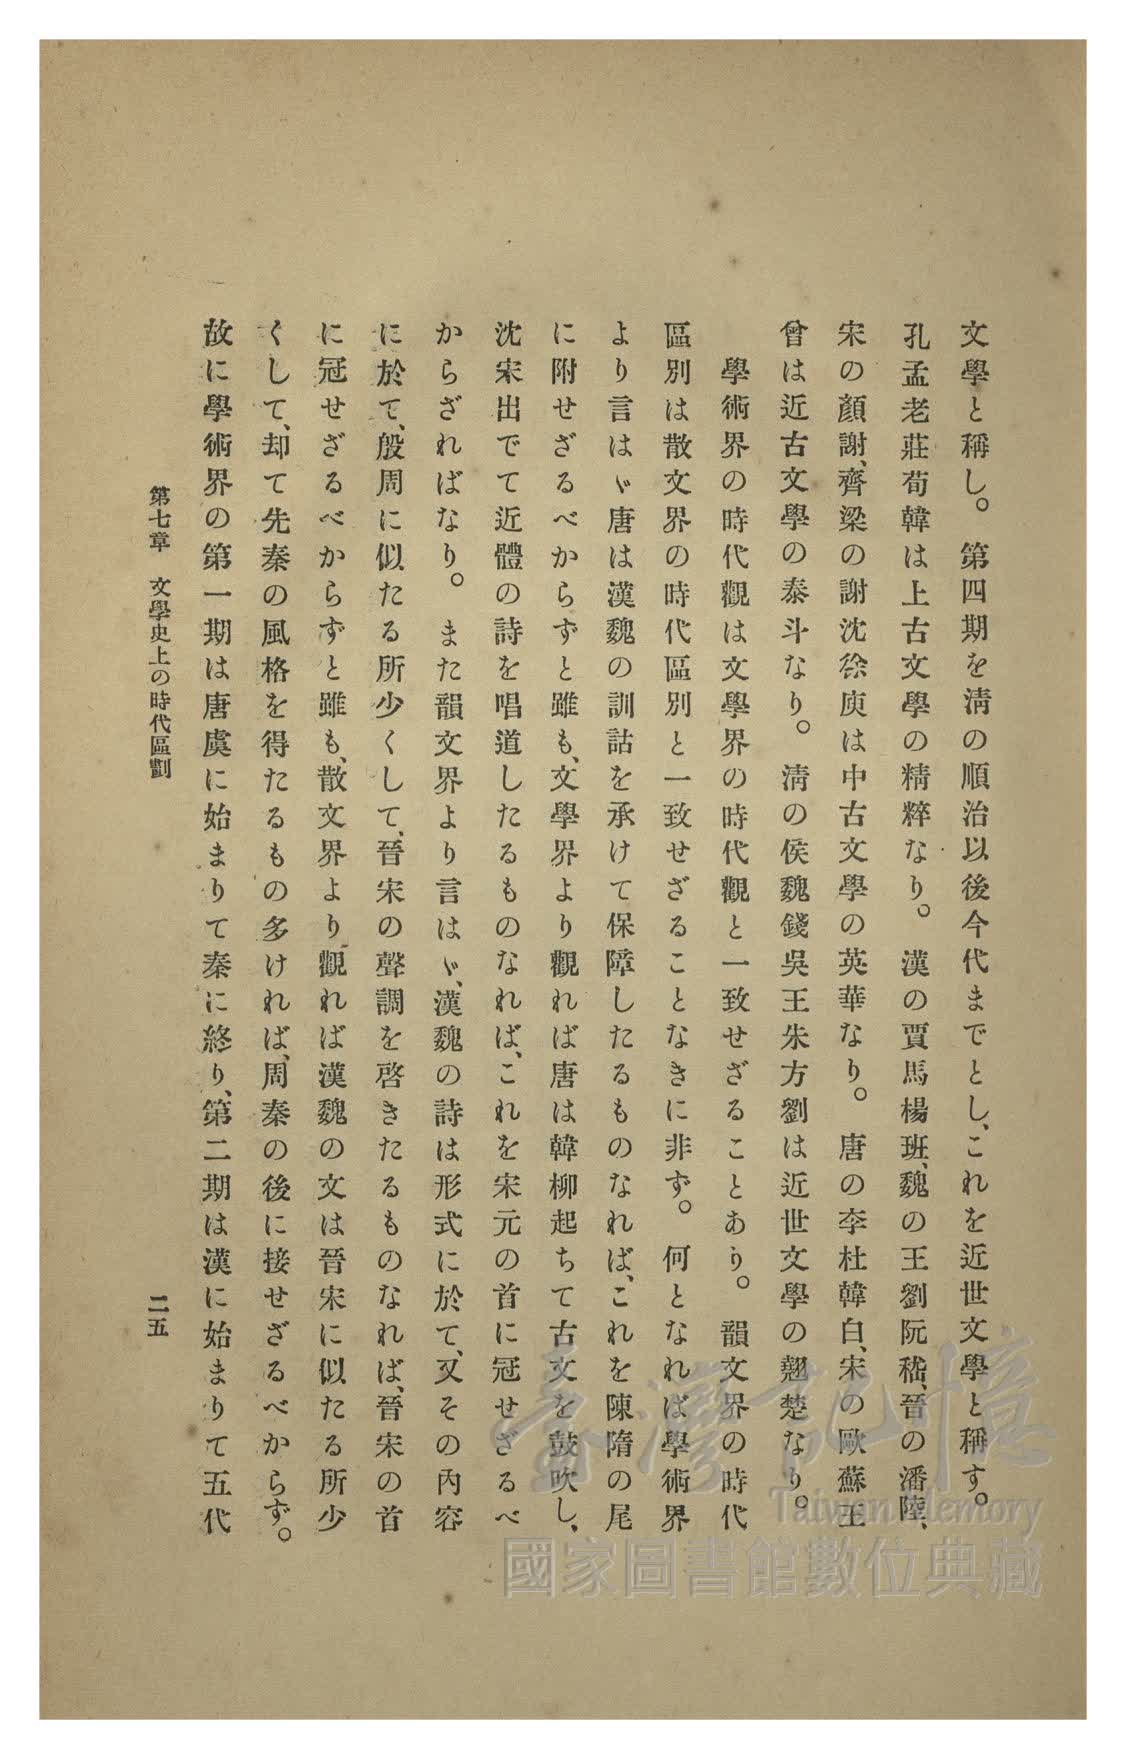 文學と稱し。　第四期を淸の順治以後今代までとし、これを近世文學と稱す。
孔孟老莊荀韓は上古文學の精粹なり。　漢の賈馬楊班、魏の王劉阮嵇、晉の潘陸、
宋の顏謝、齊梁の謝沈徐庾は中古文學の英華なり。　唐の李杜韓白、宋の歐蘇王
曾は近古文學の泰斗なり。　淸の侯魏錢吳王朱方劉は近世文學の翹楚なり。
　學術界の時代觀は文學界の時代觀と一致せざることあり。　韻文界の時代
區別は散文界の時代區別と一致せざることなきに非ず。　何となれば學術界
より言はゞ唐は漢魏の訓詁を承けて保障したるものなれば、これを陳隋の尾
に附せざるべからずと雖も、文學界より觀れば唐は韓柳起ちて古文を鼓吹し、
沈宋出でて近體の詩を唱道したるものなれば、これを宋元の首に冠せざるべ
からざればなり。　また韻文界より言はゞ、漢魏の詩は形式に於て、又その內容
に於て、殷周に似たる所少くして、晉宋の聲調を啓きたるものなれば、晉宋の首
に冠せざるべからずと雖も、散文界より觀れば漢魏の文は晉宋に似たる所少
くして、却て先秦の風格を得たるもの多ければ、周秦の後に接せざるべからず。
故に學術界の第一期は唐虞に始まりて秦に終り、第二期は漢に始まりて五代
第七章　文學史上の時代區劃
二五
臺灣記憶
Taiwan Memory
國家圖書館數位典藏